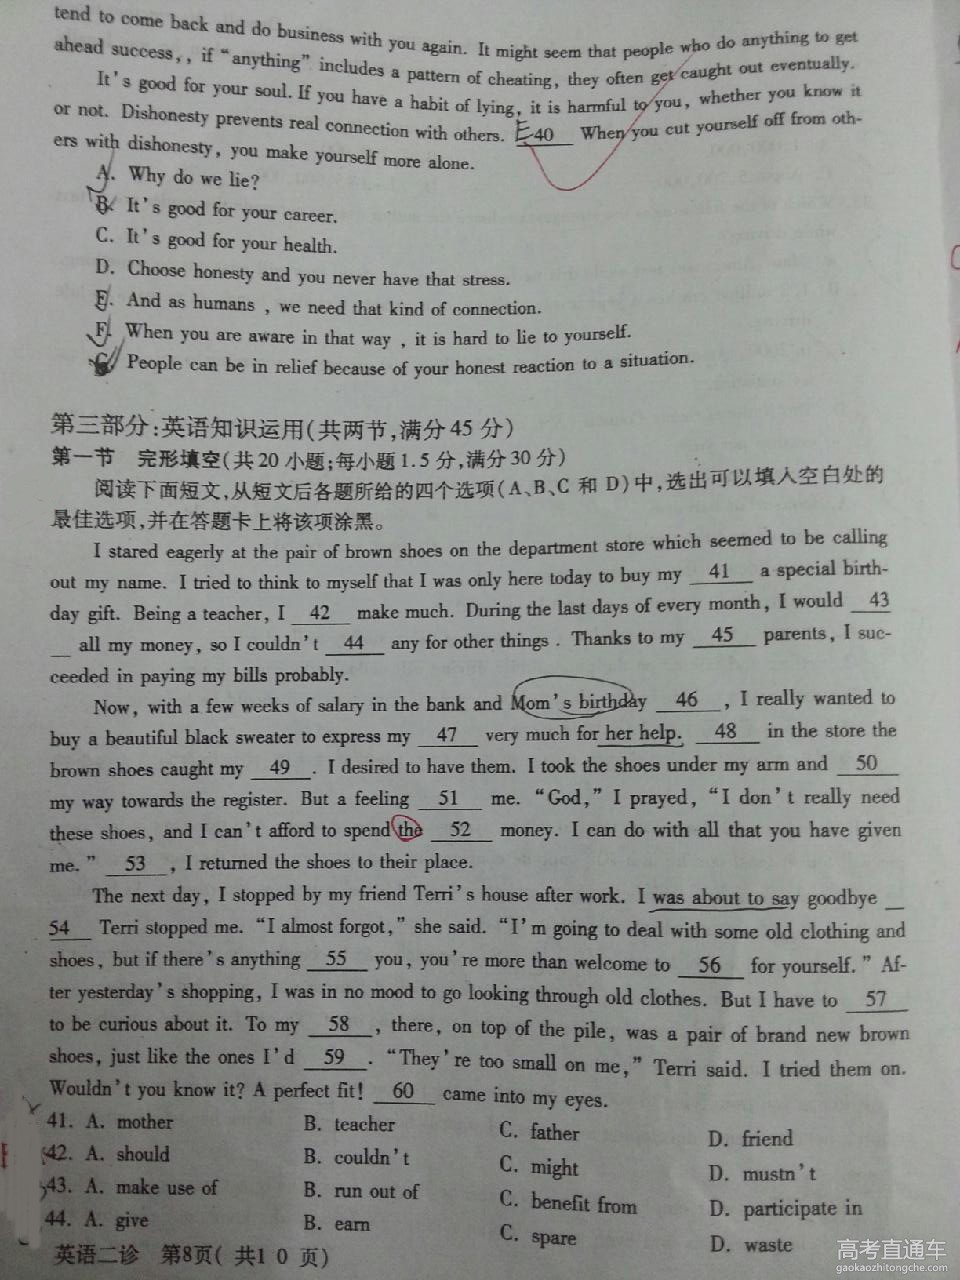 tend to come back and do business with you again. It might seem that people who do anything to get
ahead success,, if "anything" includes a pattern of cheating, they often get caught out eventually.
It's good for your soul. If you have a habit of lying, it is harmful to you, whether you know it
or not. Dishonesty prevents real connection with others. E 40 When you cut yourself off from oth-
ers with dishonesty, you make yourself more alone.
A. Why do we lie?
B. It's good for your career.
C. It's good for your health.
D. Choose honesty and you never have that stress.
E. And as humans, we need that kind of connection.
F. When you are aware in that way, it is hard to lie to yourself.
G. People can be in relief because of your honest reaction to a situation.
第三部分:英语知识运用(共两节,满分45分)
第一节 完形填空(共20小题;每小题1.5分,满分30分)
阅读下面短文,从短文后各题所给的四个选项(A、B、C和D)中,选出可以填入空白处的
最佳选项,并在答题卡上将该项涂黑。
I stared eagerly at the pair of brown shoes on the department store which seemed to be calling
out my name. I tried to think to myself that I was only here today to buy my 41 a special birth-
day gift. Being a teacher, I 42 make much. During the last days of every month, I would 43
__ all my money, so I couldn't 44 any for other things. Thanks to my 45 parents, I suc-
ceeded in paying my bills probably.
Now, with a few weeks of salary in the bank and Mom's birthday 46, I really wanted to
buy a beautiful black sweater to express my 47 very much for her help. 48 in the store the
brown shoes caught my 49. I desired to have them. I took the shoes under my arm and 50
my way towards the register. But a feeling 51 me. "God," I prayed, "I don't really need
these shoes, and I can't afford to spend the 52 money. I can do with all that you have given
me." 53, I returned the shoes to their place.
The next day, I stopped by my friend Terri's house after work. I was about to say goodbye __
54 Terri stopped me. "I almost forgot," she said. "I'm going to deal with some old clothing and
shoes, but if there's anything 55 you, you're more than welcome to 56 for yourself." Af-
ter yesterday's shopping, I was in no mood to go looking through old clothes. But I have to 57
to be curious about it. To my 58, there, on top of the pile, was a pair of brand new brown
shoes, just like the ones I'd 59. "They're too small on me," Terri said. I tried them on.
Wouldn't you know it? A perfect fit! 60 came into my eyes.
41. A. mother B. teacher C. father D. friend
42. A. should B. couldn't C. might D. mustn't
43. A. make use of B. run out of C. benefit from D. participate in
44. A. give B. earn C. spare D. waste
英语二诊 第8页(共10页)
高考直通车
gaokaozhitongche.com